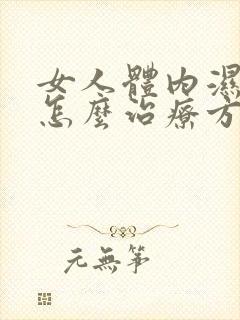 女人體內濕
怎麼治療方
元無筝